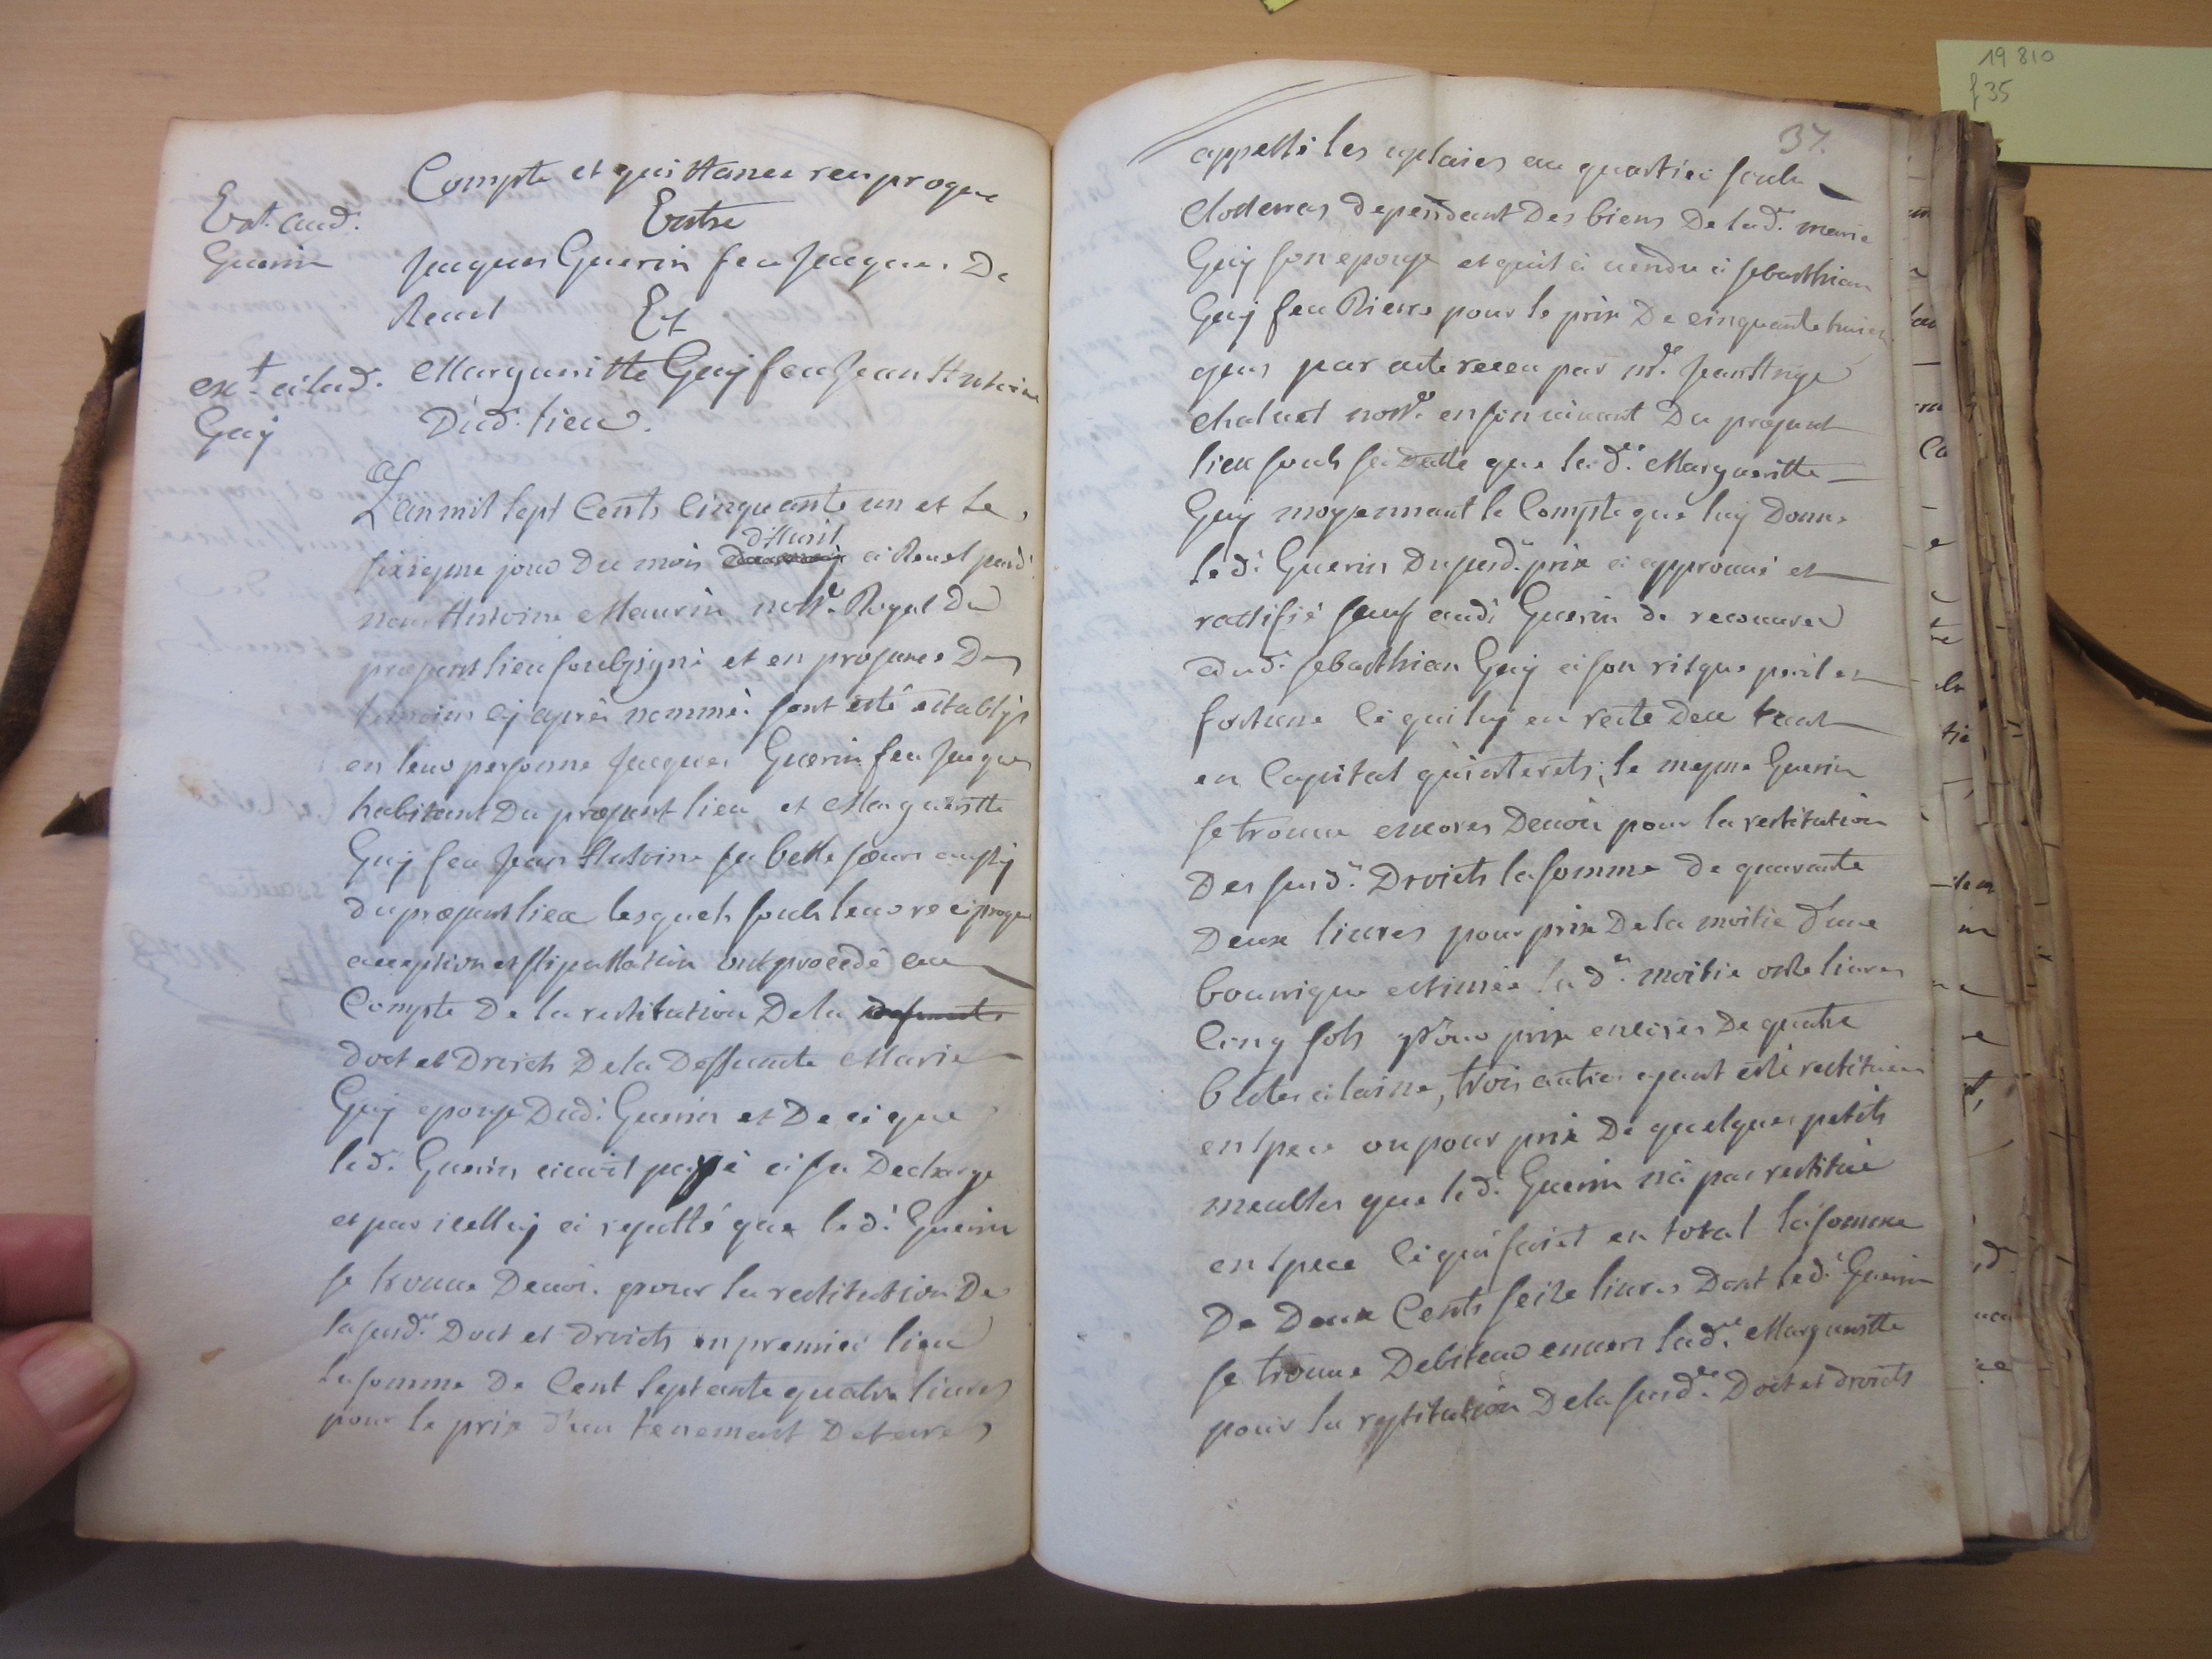 19 810
f 35
Compte et quittance reciproque
Ext. aud.
Guerin
Entre
Jacques Guerin feu Jacques De
Reuel Et
ext. a lad.
Guy
Margueritte Guy feu Jean Antoine
Dud. lieu.
L'an mil sept Cents Cinquante un et le
sixieyme jour Du mois d'Auril a Reuel pard.
nous Antoine Maurin notre. Royal Du
present lieu soubsigné et en presance Des
temoins cy aprés nommés sont esté establys
en leur personne Jacques Guerin feu Jacques
habitant Du present lieu et Margueritte
Guy feu Jean Antoine sa belle soeur aussy
du present lieu lesquels soubs leur reciproque
acception et stipullation ont procedé au
Compte De la restitution De la defunte
doct et Droicts De la Deffunte Marie
Guy epouse Dud. Guerin et De ce que
led. Guerin auoit payé a sa Decharge
et par icelluy a resulté que led. Guerin
se trouue Deuoir pour la restitution De
la susd. Doct et droicts en premier lieu
la somme De Cent septante quatre liures
pour le prix d'un tenement De terre
37.
appellé les aplaies au quartier soubs
Clostenas dependant Des biens De lad. marie
Guy son epouse et quil a uendu a sebasthian
Guy feu Pierre pour le prix De cinquante huict
equs par acte receu par me. Jean Ange
Chaluet notre. en son uiuant Du present
lieu soubs sa Datte que lad. Margueritte
Guy moyennant le Compte que luy Donne
led. Guerin Du susd. prix a approuué et
rattifié sauf aud. Guerin de recouurer
dud. sebasthian Guy a son risque peril et
fortune Ce qui luy en reste deu tant
en Capital qu'interets; le mesme Guerin
se trouue encores Deuoir pour la restitution
Des susd. Droicts la somme de quarante
Deux liures pour prix De la moitie d'une
bourrique estimée lad. moitie octe liures
Cinq sols pour prix encores De quatre
bettes a laine, trois autres ayant esté restituées
en spece ou pour prix De quelques petits
meubles que led. Guerin n'a pas restitué
en spece Ce qui faict en total la somme
De Deux Cents seize liures Dont led. Guerin
se trouue Debiteur enuers lad. Margueritte
pour la restitution De la susd. Doct et droicts